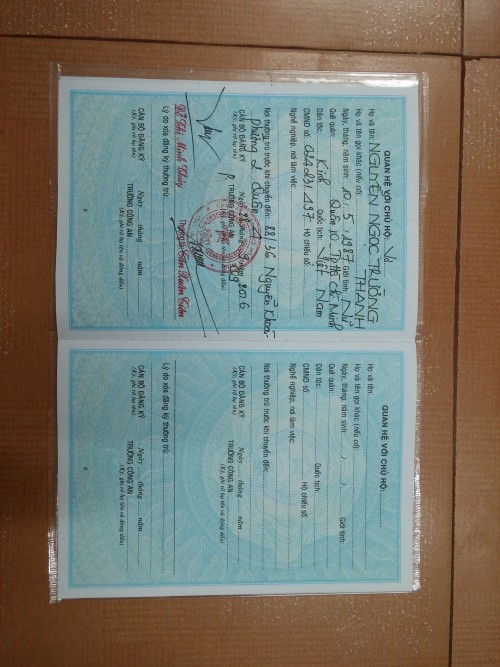 QUAN HỆ VỚI CHỦ HỘ: Vợ
Họ và tên: NGUYỄN NGỌC TRƯỜNG
THANH
Họ và tên gọi khác (nếu có):
Ngày, tháng, năm sinh: 10.5.1987 Giới tính: Nữ
Quê quán: Quận 10, TP Hồ Chí Minh
Dân tộc: Kinh Quốc tịch: Việt Nam
CMND số: Hộ chiếu số:
Nghề nghiệp, nơi làm việc:
Nơi thường trú trước khi chuyển đến: 88/36 Nguyễn Khoái
Phường 2 Quận 4
Ngày 28 tháng năm 2016
CÁN BỘ ĐĂNG KÝ TRƯỞNG CÔNG AN
(Ký, ghi rõ họ tên) (Ký, ghi rõ họ tên và đóng dấu)
Đỗ Thị Minh Thủy
Lý do xóa đăng ký thường trú:
Ngày tháng năm
CÁN BỘ ĐĂNG KÝ TRƯỞNG CÔNG AN
(Ký, ghi rõ họ tên) (Ký, ghi rõ họ tên và đóng dấu)
QUAN HỆ VỚI CHỦ HỘ:
Họ và tên:
Họ và tên gọi khác (nếu có):
Ngày, tháng, năm sinh: / / Giới tính:
Quê quán:
Dân tộc: Quốc tịch:
CMND số: Hộ chiếu số:
Nghề nghiệp, nơi làm việc:
Nơi thường trú trước khi chuyển đến:
Ngày tháng năm
CÁN BỘ ĐĂNG KÝ TRƯỞNG CÔNG AN
(Ký, ghi rõ họ tên) (Ký, ghi rõ họ tên và đóng dấu)
Lý do xóa đăng ký thường trú:
Ngày tháng năm
CÁN BỘ ĐĂNG KÝ TRƯỞNG CÔNG AN
(Ký, ghi rõ họ tên) (Ký, ghi rõ họ tên và đóng dấu)